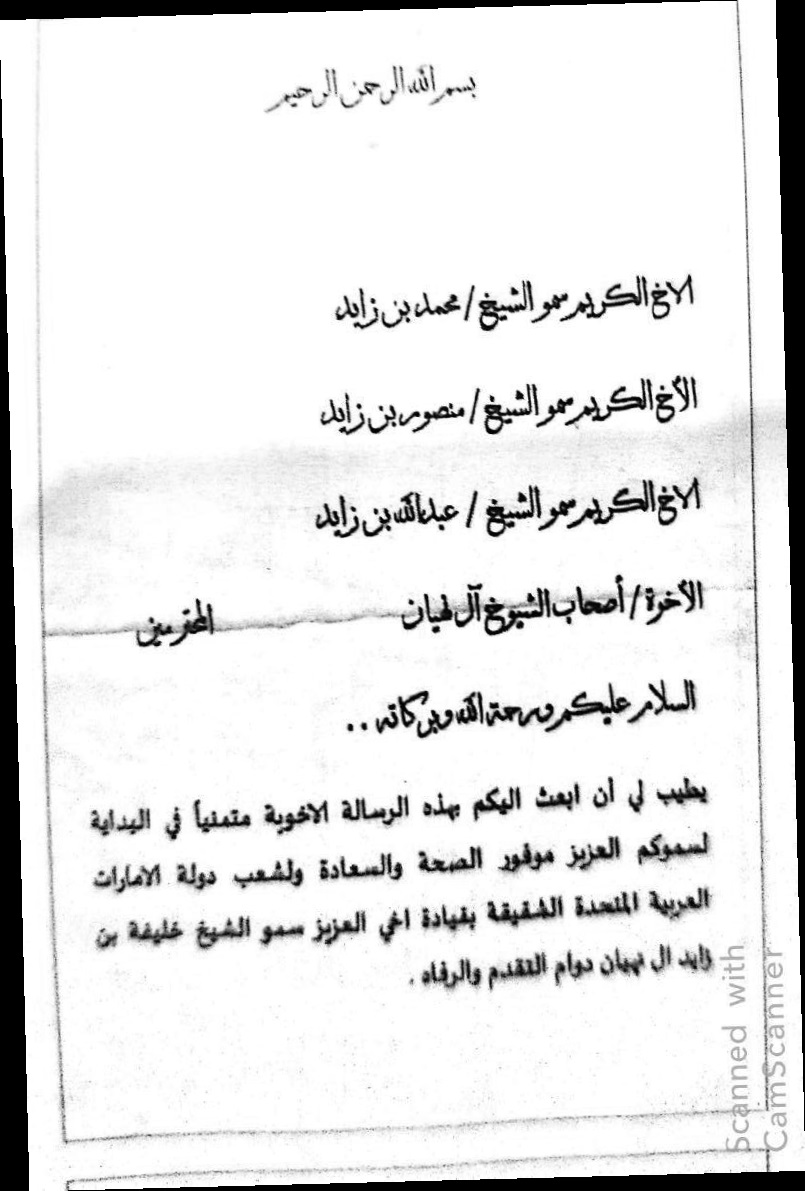 بسم الله الرحمن الرحيم
الاخ الكريم سمو الشيخ / محمد بن زايد
الأخ الكريم سمو الشيخ / منصور بن زايد
الاخ الكريم سمو الشيخ / عبدالله بن زايد
الأخوة / أصحاب الشيوخ آل نهيان المحترمين
السلام عليكم ورحمة الله وبركاته ..
يطيب لي أن ابعث اليكم بهذه الرسالة الاخوية متمنياً في البداية
لسموكم العزيز موفور الصحة والسعادة ولشعب دولة الامارات
العربية المتحدة الشقيقة بقيادة اخي العزيز سمو الشيخ خليفة بن
زايد ال نهيان دوام التقدم والرفاه .
Scanned with
CamScanner